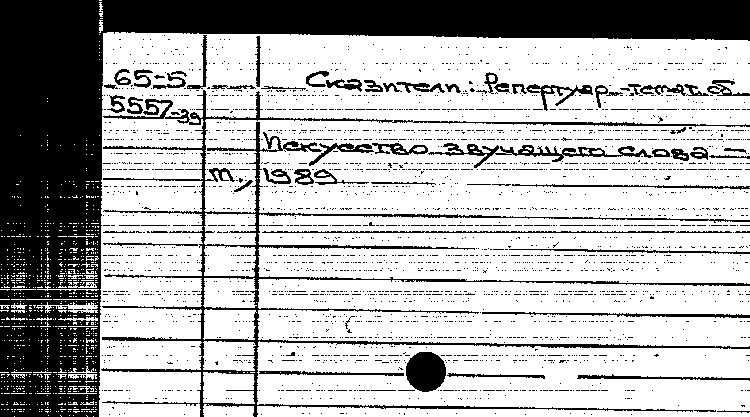 65-5 Сказители: Репертуар.-темат. б
5557-39
Искусство звучащего слова -
м., 1989